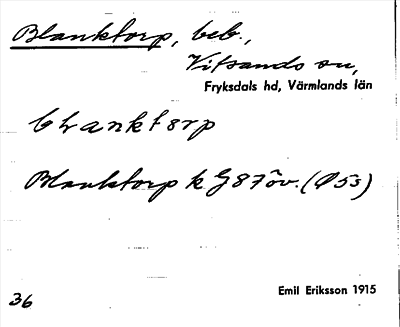 Blanktorp, beb.,
Vitsands sn,
Fryksdals hd, Värmlands län
blanktorp
Blanktorp k G87 öv. (Ø53)
Emil Eriksson 1915
36